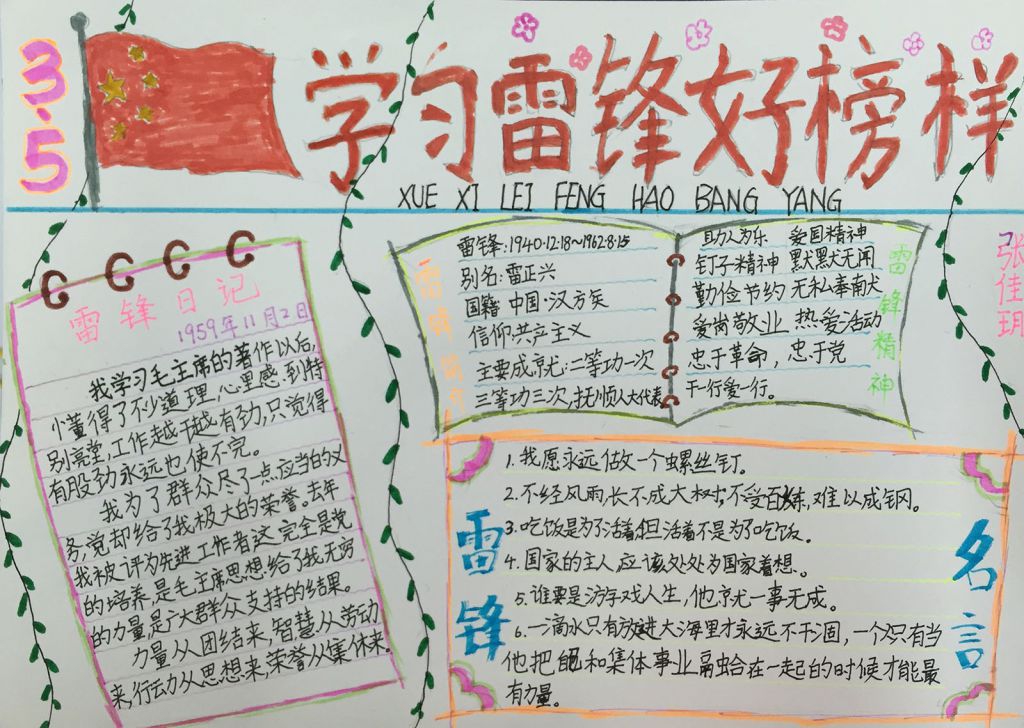 3.5
学习雷锋好榜样
XUE XI LEI FENG HAO BANG YANG
雷锋日记
1959年11月2日
我学习毛主席的著作以后,
懂得了不少道理,心里感到特
别亮堂,工作越干越有劲,只觉得
有股劲永远也使不完。
我为了群众尽了一点应当的义
务,党却给了我极大的荣誉。去年
我被评为先进工作者这完全是党
的培养,是毛主席思想给了我无穷
的力量,是广大群众支持的结果。
力量从团结来,智慧从劳动
来,行动从思想来,荣誉从集体来。
雷锋简介
雷锋:1940·12·18~1962·8·15
别名:雷正兴
国籍 中国·汉方矣
信仰共产主义
主要成就:二等功一次
三等功三次,抚顺人大代表
助人为乐 爱国精神
钉子精神 默默无闻
勤俭节约 无私奉南犬
爱岗敬业 热爱活动
忠于革命,忠于党
干一行爱一行。
雷锋精神
张佳玥
雷锋
名言
1.我愿永远做一个螺丝钉。
2.不经风雨,长不成大树;不受百练,难以成钢。
3.吃饭是为了活着,但活着不是为了吃饭。
4.国家的主人,应该处处为国家着想。
5.谁要是游戏人生,他就一事无成。
6.一滴水只有放进大海里才永远不干涸,一个只有当
他把自己和集体事业融合在一起的时候才能最
有力量。